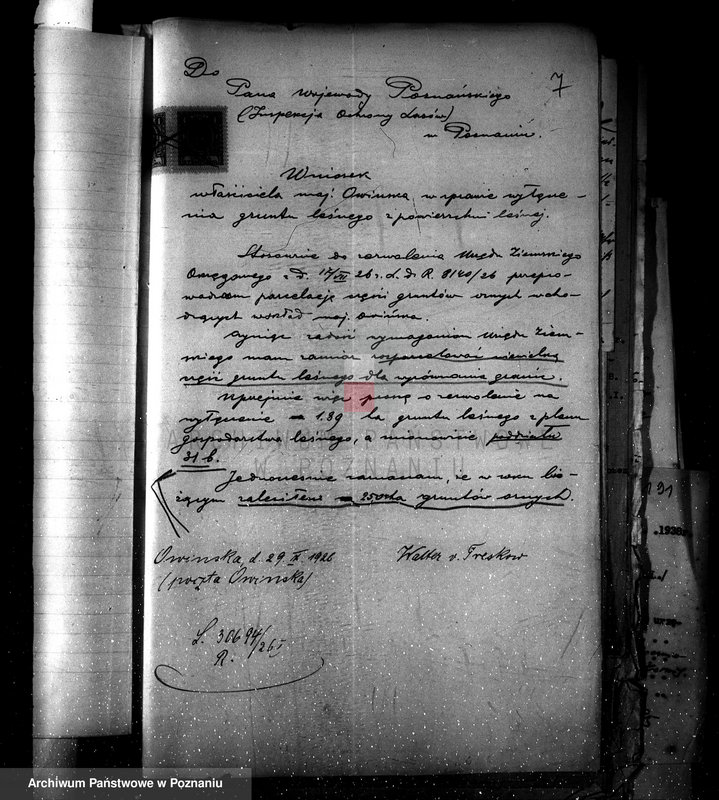 Do
7
Pana Wojewody Poznańskiego
(Inspekcja Ochrony Lasów)
w Poznaniu.
Wniosek
właściciela maj. Owińska w sprawie wyłącze-
nia gruntu leśnego z powierzchni leśnej.
Stosownie do zezwolenia Urzędu Ziemskiego
Okręgowego z d. 17/VII 26 r. L. dz. R. 8140/26 przepro-
wadzam parcelację części gruntów ornych wcho-
dzących w skład maj. Owińska.
Czyniąc zadość wymaganiom Urzędu Ziem-
skiego mam zamiar rozparcelować niewielką
część gruntu leśnego dla wyrównania granic.
Uprzejmie więc proszę o zezwolenie na
wyłączenie 1.89 ha gruntu leśnego z planu
gospodarstwa leśnego, a mianowicie poddziału
31 b.
Jednocześnie zaznaczam, że w roku bie-
żącym zalesiłem gruntów ornych.
Owińska, d. 29 X. 1926
Walter v. Treskow
(poczta Owińska)
L. 30694/26 I
R.
ARCHIWUM PAŃSTWOWE
W POZNANIU
191
.1938r.
Archiwum Państwowe w Poznaniu